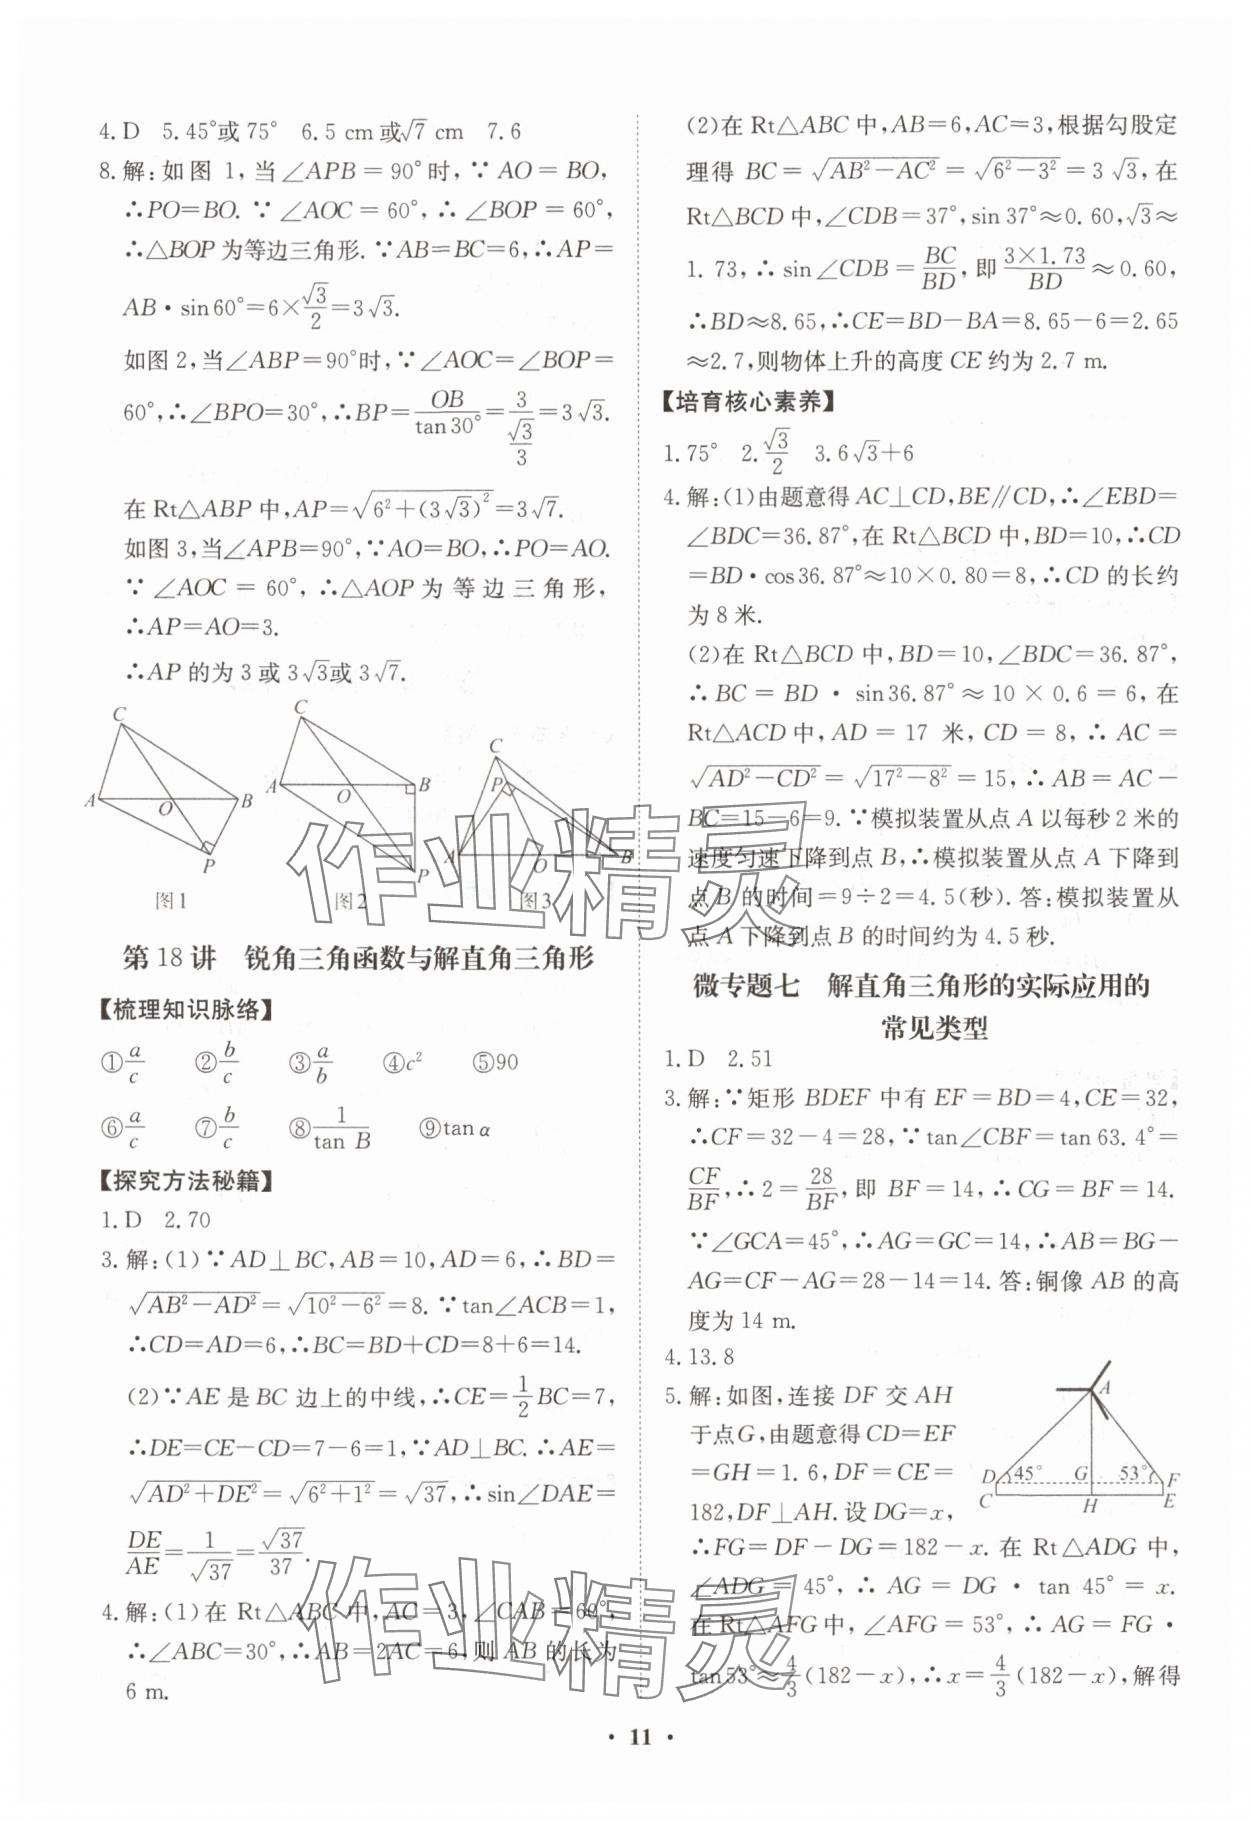 4.D　5.45°或 75°　6.5 cm 或√7 cm　7.6
8.解:如图 1,当∠APB=90°时,∵AO=BO,
∴PO=BO. ∵∠AOC=60°,∴∠BOP=60°,
∴△BOP 为等边三角形.∵AB=BC=6,∴AP=
AB·sin60°=6×√3/2=3√3.
如图 2,当∠ABP=90°时,∵∠AOC=∠BOP=
60°,∴∠BPO=30°,∴BP=OB/tan30°=3/(√3/3)=3√3.
在 Rt△ABP 中,AP=√(6²+(3√3)²)=3√7.
如图 3,当∠APB=90°,∵AO=BO,∴PO=AO.
∵∠AOC=60°,∴△AOP 为等边三角形,
∴AP=AO=3.
∴AP 的为 3 或 3√3或 3√7.
C A O B P
图1
C A O B P
图2
C P A O B
图3
第 18 讲　锐角三角函数与解直角三角形
【梳理知识脉络】
①a/c　②b/c　③a/b　④c²　⑤90
⑥a/c　⑦b/c　⑧1/tan B　⑨tan α
【探究方法秘籍】
1.D　2.70
3.解:(1)∵AD⊥BC,AB=10,AD=6,∴BD=
√(AB²-AD²)=√(10²-6²)=8.∵tan∠ACB=1,
∴CD=AD=6,∴BC=BD+CD=8+6=14.
(2)∵AE 是 BC 边上的中线,∴CE=1/2BC=7,
∴DE=CE-CD=7-6=1,∵AD⊥BC.∴AE=
√(AD²+DE²)=√(6²+1²)=√37,∴sin∠DAE=
DE/AE=1/√37=√37/37.
4.解:(1)在 Rt△ABC 中,AC=3,∠CAB=60°,
∴∠ABC=30°,∴AB=2AC=6,则 AB 的长为
6 m.
(2)在 Rt△ABC 中,AB=6,AC=3,根据勾股定
理得 BC=√(AB²-AC²)=√(6²-3²)=3√3,在
Rt△BCD 中,∠CDB=37°,sin 37°≈0.60,√3≈
1.73,∴sin∠CDB=BC/BD,即(3×1.73)/BD≈0.60,
∴BD≈8.65,∴CE=BD-BA=8.65-6=2.65
≈2.7,则物体上升的高度 CE 约为 2.7 m.
【培育核心素养】
1.75°　2.√3/2　3.6√3+6
4.解:(1)由题意得 AC⊥CD,BE∥CD,∴∠EBD=
∠BDC=36.87°,在 Rt△BCD 中,BD=10,∴CD
=BD·cos36.87°≈10×0.80=8,∴CD 的长约
为 8 米.
(2)在 Rt△BCD 中,BD=10,∠BDC=36.87°,
∴BC=BD·sin36.87°≈10×0.6=6,在
Rt△ACD 中,AD=17 米,CD=8,∴AC=
√(AD²-CD²)=√(17²-8²)=15,∴AB=AC-
BC=15-6=9.∵模拟装置从点 A 以每秒 2 米的
速度匀速下降到点 B,∴模拟装置从点 A 下降到
点 B 的时间=9÷2=4.5(秒).答:模拟装置从
点 A 下降到点 B 的时间约为 4.5 秒.
微专题七　解直角三角形的实际应用的
常见类型
1.D　2.51
3.解:∵矩形 BDEF 中有 EF=BD=4,CE=32,
∴CF=32-4=28,∵tan∠CBF=tan 63.4°=
CF/BF,∴2=28/BF,即 BF=14,∴CG=BF=14.
∵∠GCA=45°,∴AG=GC=14,∴AB=BG-
AG=CF-AG=28-14=14.答:铜像 AB 的高
度为 14 m.
4.13.8
5.解:如图,连接 DF 交 AH
于点G,由题意得 CD=EF
=GH=1.6,DF=CE=
182,DF⊥AH.设 DG=x,
∴FG=DF-DG=182-x.在 Rt△ADG 中,
∠ADG=45°,∴AG=DG·tan 45°=x.
在 Rt△AFG 中,∠AFG=53°,∴AG=FG·
tan53°≈4/3(182-x),∴x=4/3(182-x),解得
A D 45° G 53° F C H E
·11·
作业精灵
作业精灵